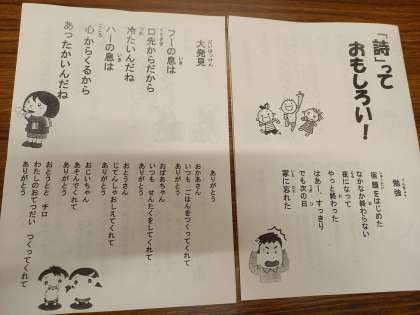 「詩」って
おもしろい！
勉強
宿題をはじめた
なかなか終わらない
夜になって
やっと終わった
はあー、すっきり
でも次の日
家に忘れた
大発見
フーの息は
口先からだから
冷たいんだね
ハーの息は
心からくるから
あったかいんだね
ありがとう
おかあさん
いつも ごはんをつくってくれて
ありがとう
おばあちゃん
いつも せんたくをしてくれて
ありがとう
おとうさん
じてんしゃおしえてくれて
ありがとう
おじいちゃん
あそんでくれて
ありがとう
おとうとと チロ
わたしのおてつだい つくってくれて
ありがとう